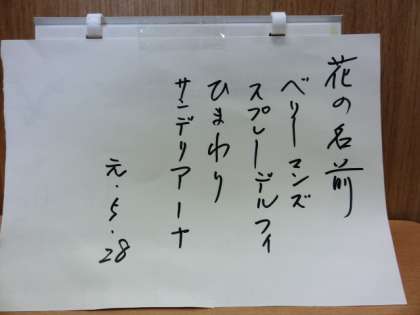 花の名前
ベリーマンズ
スプレーデルフィ
ひまわり
サンデリアーナ
元.5.28